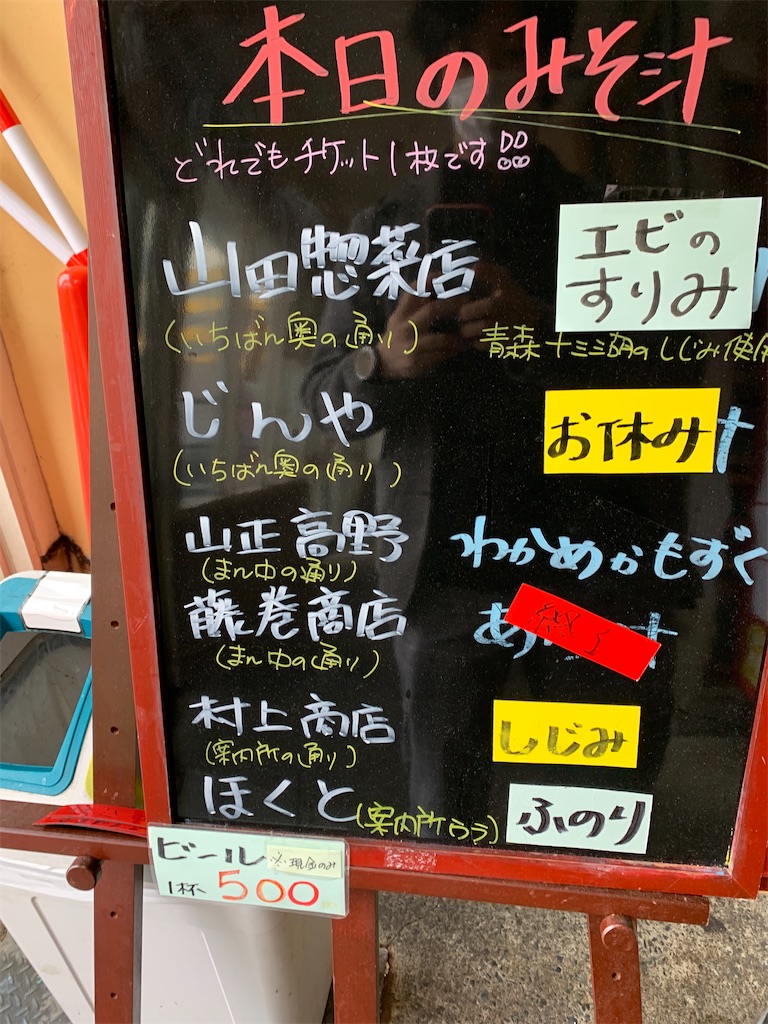 本日のみそ汁
どれでもチケット1枚です!!
山田惣菜店
エビの
すりみ
(いちばん奥の通り)
青森十三湖のしじみ使用
じんや
お休み
(いちばん奥の通り)
山正高野
わかめかもずく
(まん中の通り)
藤巻商店
終了
(まん中の通り)
村上商店
しじみ
(案内所の通り)
ほくと
(案内所うら)
ふのり
ビール
※現金のみ
1杯 500